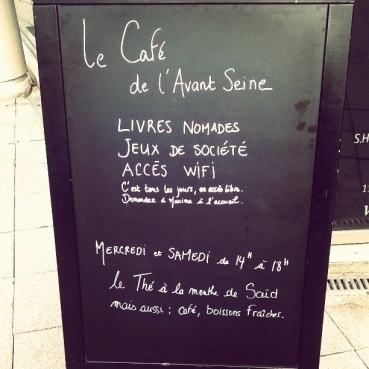 Le Café
de l'Avant Seine
LIVRES NOMADES
JEUX DE SOCIÉTÉ
ACCÈS WIFI
C'est tous les jours, en accès libre.
Demandez à Maxime à l'accueil.
MERCREDI et SAMEDI de 14H à 18H
le Thé à la menthe de Saïd
mais aussi : café, boissons fraîches.
S.H